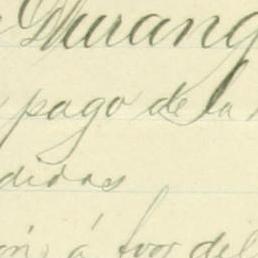 Durang
pago de la
didas
ón á favor del